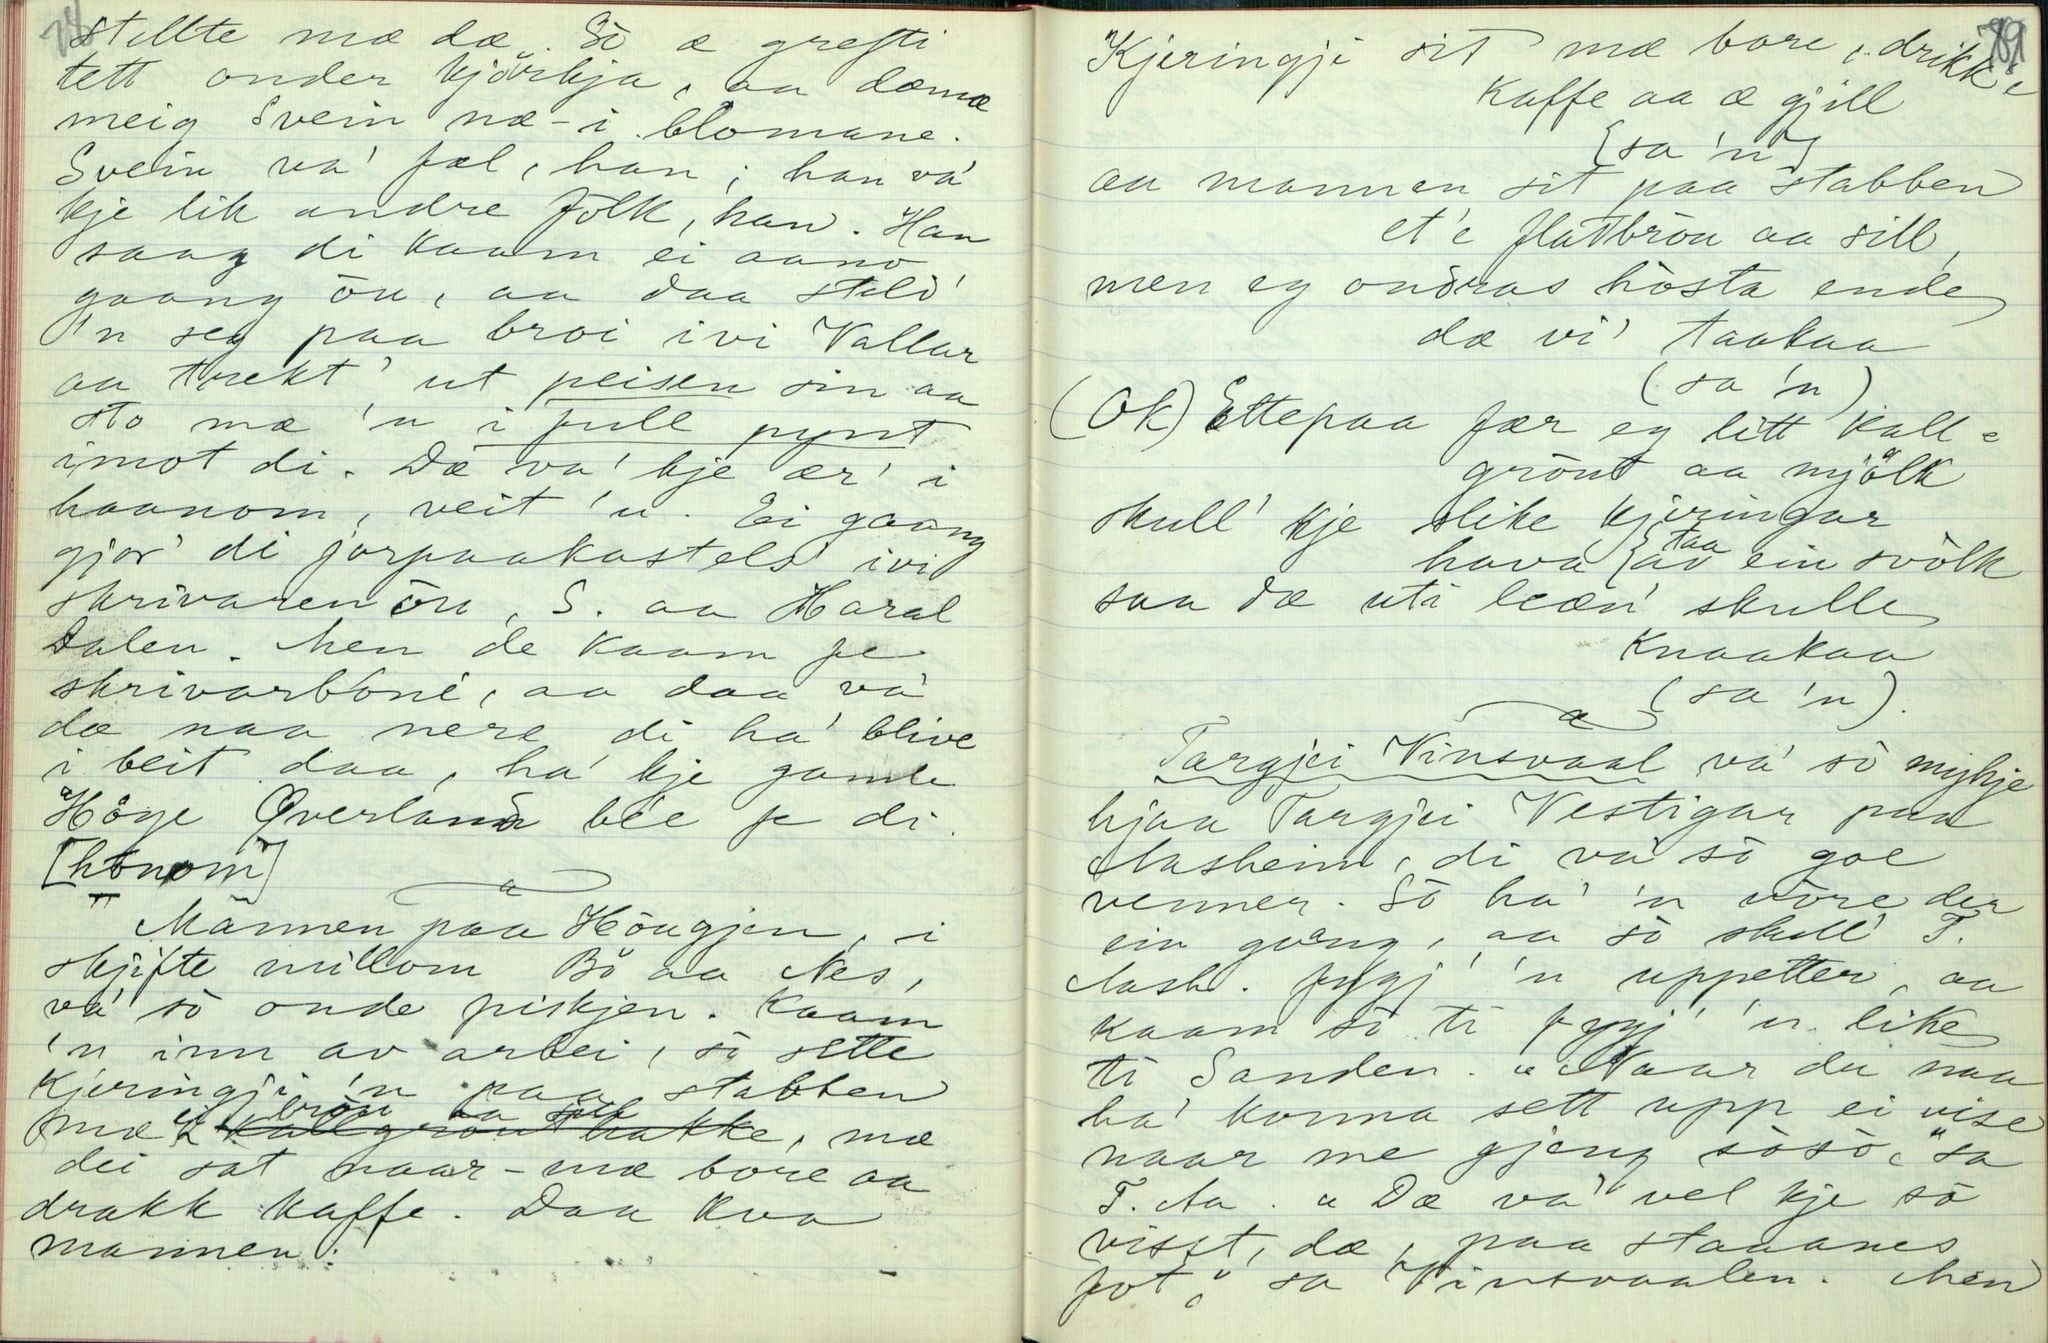 78
stellte mæ dæ. Sò æ grefti
tett onder kjörkja, aa dæmæ
meig Svein næ-i blomane.
Svein va' fæl, han; han va'
kje lik andre folk, han. Han
saag di kaam ei aano
gaang òu, aa daa stelò'
'n seg paa broi ivi Vallar
aa trekt' ut peisen sin aa
sto mæ 'n i full pynt
imot di. Dæ va' kje ær' i
haanom, veit 'n. Ei gaang
gjor' di jorpaakastels' ivi
skrivaren òu, S. aa Haral
Dalen. Men de kaam fe
skrivarbòne, aa daa va'
dæ naa nere di ha' blive
i beit daa, ha' kje gamle
Höge Qverland bee fe di.
[hònom]
Mannen paa Hòugjen, i
skjifte millom Bö aa Nes,
va' sò onde piskjen. Kaam
'n inn av arbei, sò sette
kjeringji 'n paa stabben
mæ bròu aa sill, mæ
dei sat naar-mæ bore aa
drakk kaffe. Daa kva
mannen:
79
"Kjeringji sit mæ bore, drikk'e
kaffe aa æ gjill
{sa 'n}
aa mannen sit paa stabben
et'e flatbròu aa sill,
men eg ondras hòsta ende
dæ vi' taakaa
(sa 'n)
(Ok) Ettepaa fær eg litt kall-
gròut aa mjölk
skull' kje slike kjeringar
hava {av taa ein svòlk
saa dæ uti leæn' skulle
knaakaa
(sa 'n).
Targjei Vinsvaal va' sò mykje
hjaa Targjei Vestigar paa
Aasheim, di va' sò goe
venner. Sò ha' 'n vòre der
ein gaang, aa sò skull' T.
Aash. fygj' 'n uppetter, aa
kaam sò ti fygj' 'n like
ti Sanden. "Naar du naa
ha' konna sett upp ei vise
naar me gjeng sòsò," sa
T. Aa. "Dæ va' vel kje sò
visst, dæ, paa staaanes
fot," sa Vinsvaalen. Men